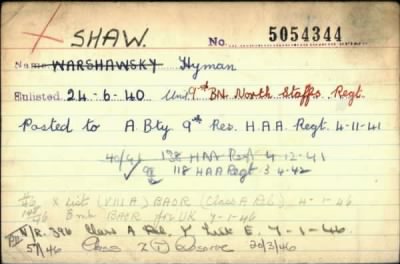 SHAW. No. 5054344
Name WARSHAWSKY Hyman
Enlisted 24-6-40 Unit 9th BN. North Staffs Regt.
Posted to A Bty 9th Res. H.A.A. Regt. 4-11-41
40/41 138 HAA Regt 4-12-41
118 HAA Regt 3 4-42
X List (VIII A) BAOR (Class A Rel) 4-1-46
BAOR for UK 7-1-46
N/R. 396 Class A Rel. Y List E. 7-1-46.
57/46 Class Z (T) Reserve 20/3/46